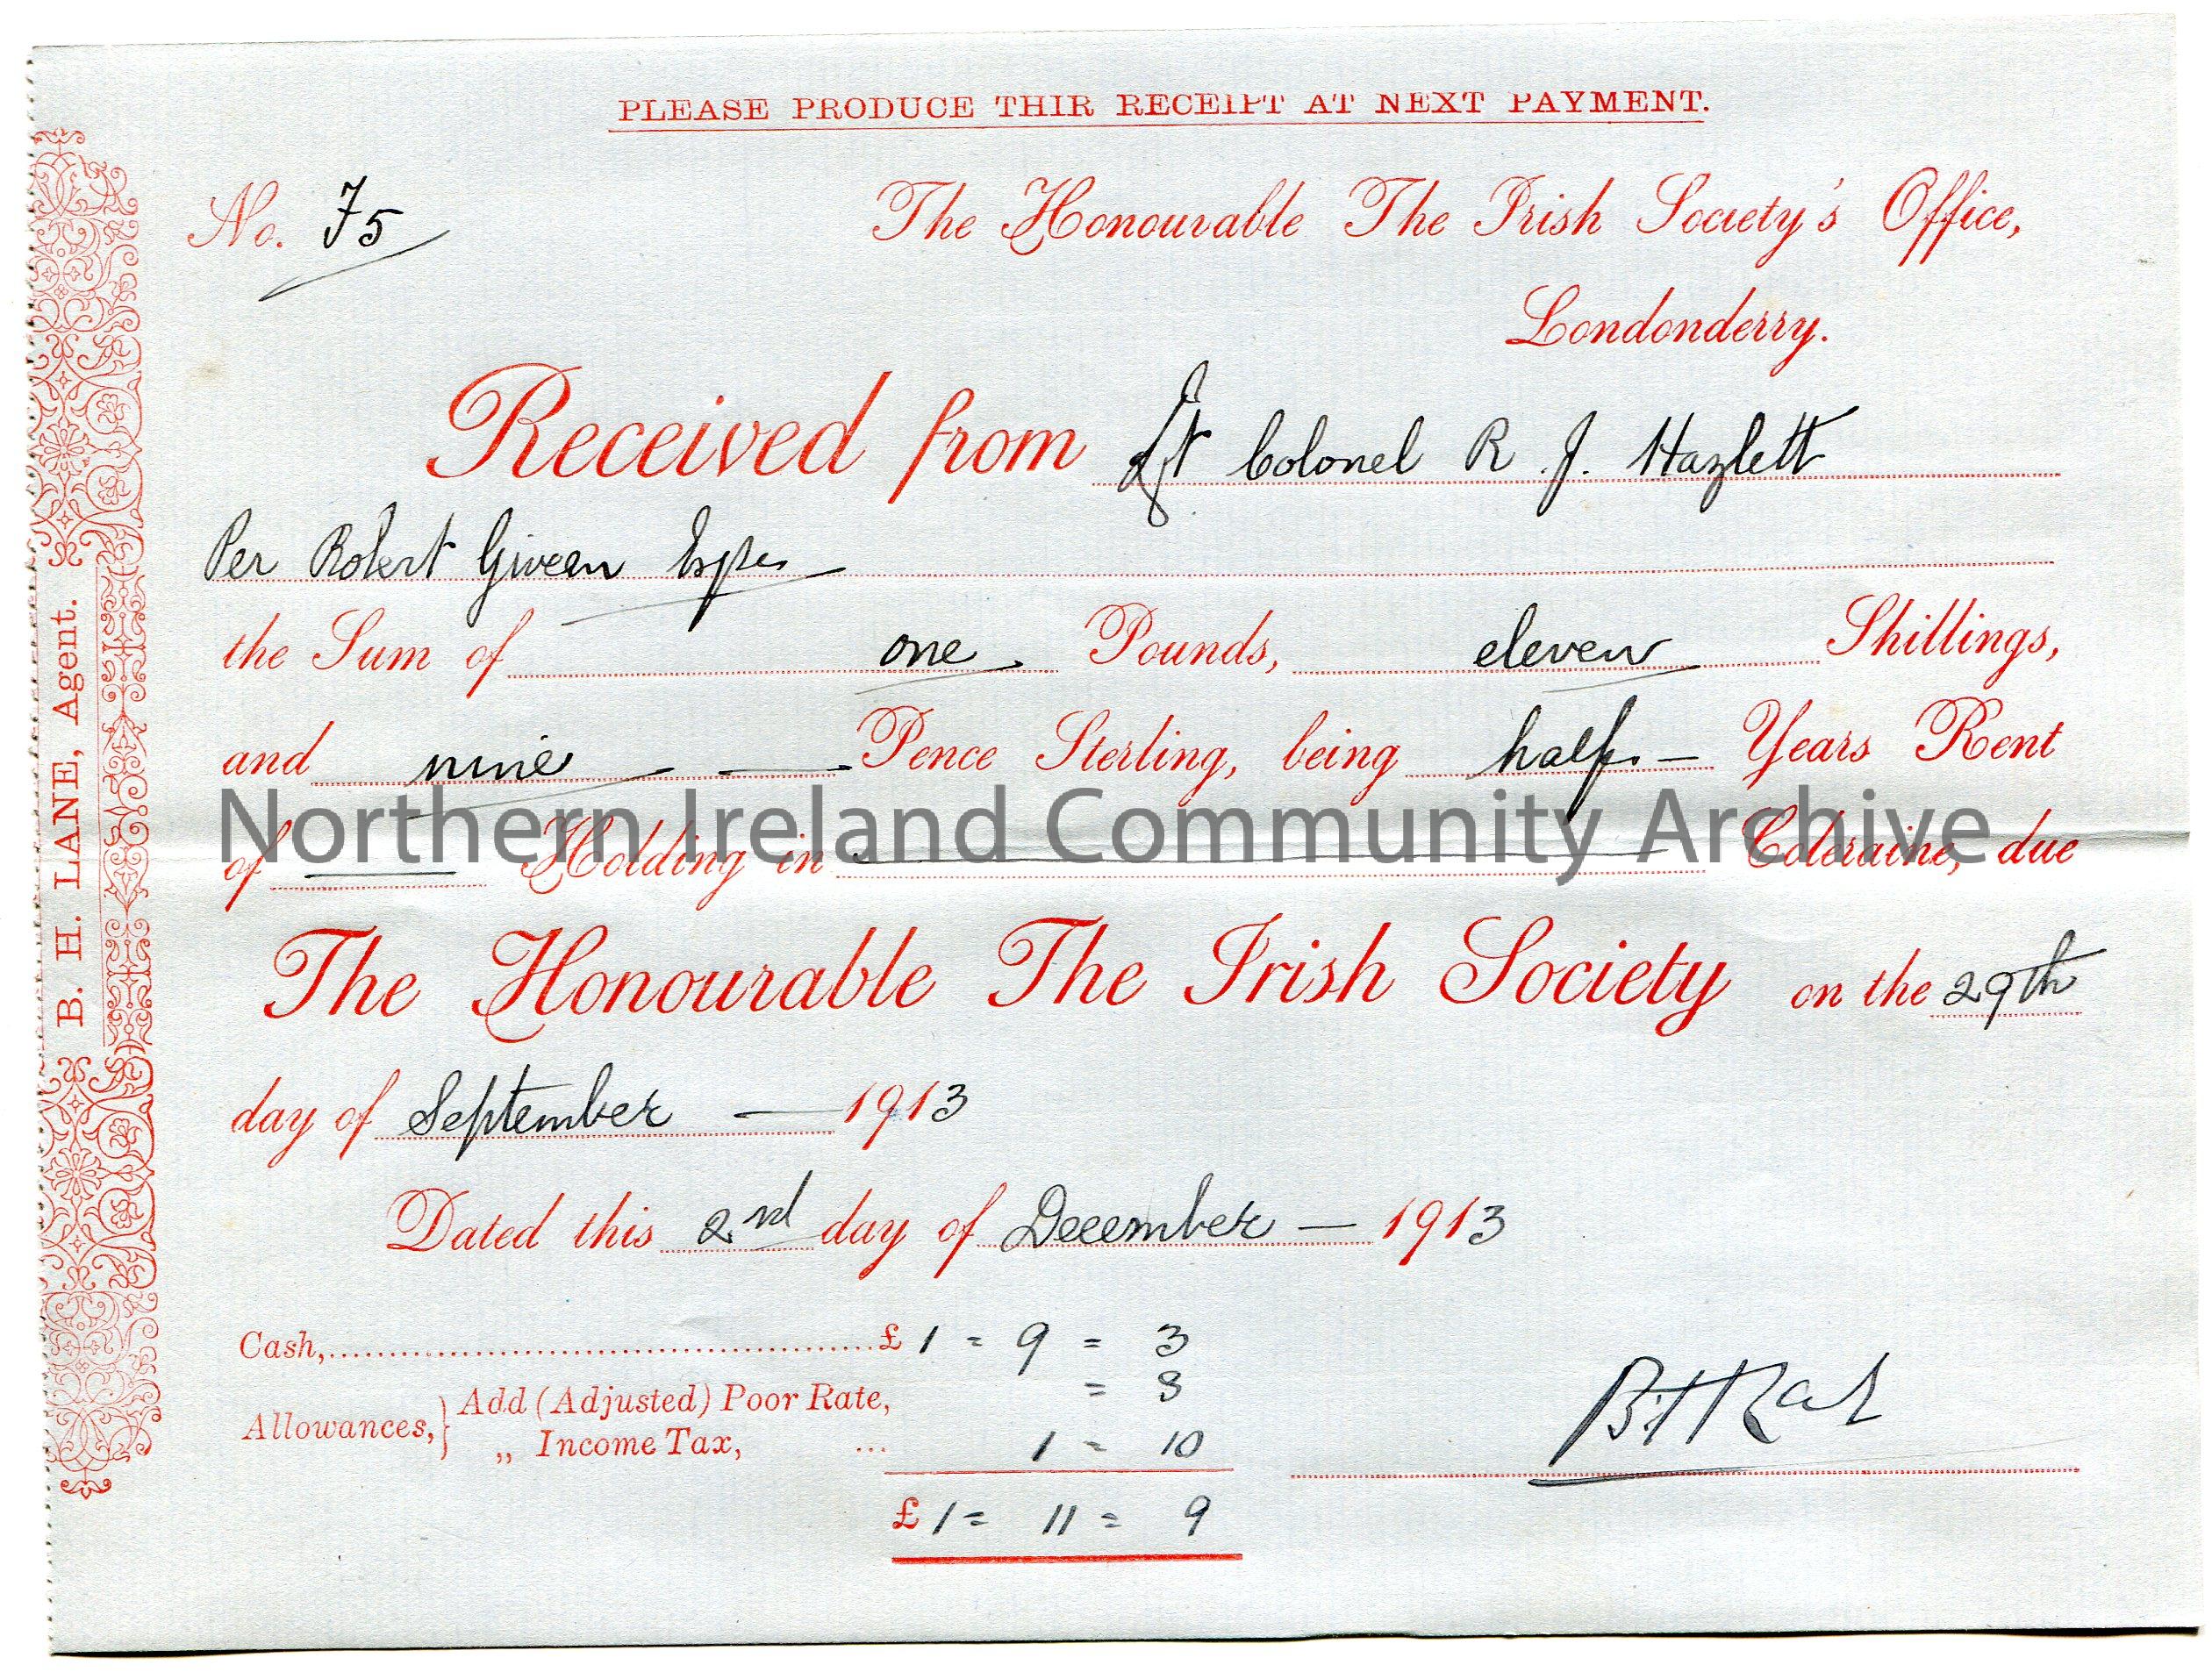 PLEASE PRODUCE THIR RECEIPT AT NEXT PAYMENT.
No. 75
The Honourable The Irish Society's Office,
Londonderry.
Received from Lt Colonel R. J. Hazlett
Per Robert Giveen Esqre
the Sum of one Pounds, eleven Shillings,
and nine — Pence Sterling, being half — Years Rent
Northern Ireland Community Archive
of — Holding in — Coleraine, due
The Honourable The Irish Society on the 29th
day of September — 1913
Dated this 2nd day of December — 1913
Cash, £ 1 = 9 = 3
Allowances, } Add (Adjusted) Poor Rate, = 8
„ Income Tax, ... 1 = 10
£ 1 = 11 = 9
B. H. LANE, Agent.